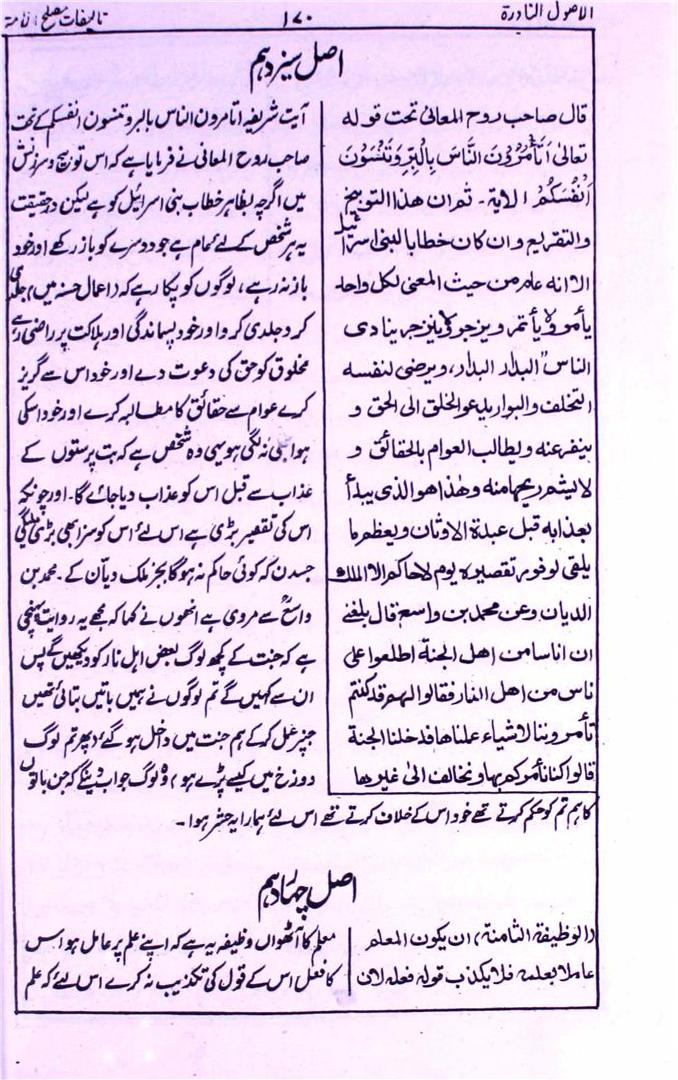 الاصول النادرة
۱۷۰
تالیفات مصلح الامۃ
اصل سیزدہم
قال صاحب روح المعانی تحت قوله
تعالیٰ اَتَأْمُرُوْنَ النَّاسَ بِالْبِرِّ وَتَنْسَوْنَ
اَنْفُسَكُمْ الاٰیة ۔ ثم ان هذا التوبیخ
والتقریع وان کان خطابا لبنی اسرائیل
الا انه عام من حیث المعنی لکل واحد
یأمر ولا یأتمر ویزجر ولا ینزجر ینادی
الناس البدار البدار، ویرضی لنفسه
التخلف والبوار یدعو الخلق الی الحق و
ینفر عنه ویطالب العوام بالحقائق و
لا یشم ریحها منه وهٰذا هو الذی یبدأ
بعذابه قبل عبدة الاوثان ویعظم ما
یلقی لوفور تقصیره یوم لا حاکم الا الملك
الدیان وعن محمد بن واسع قال بلغنی
ان اناسا من اهل الجنة اطلعوا علی
ناس من اهل النار فقالوا لهم قد کنتم
تأمروننا لاشیاء عملناها فدخلنا الجنة
قالوا کنا نأمرکم بها ونخالف الی غیرها
آیت شریفہ اتامرون الناس بالبر وتنسون انفسکم کے تحت
صاحب روح المعانی نے فرمایا ہے کہ اس توبیخ و سرزنش
میں اگرچہ بظاہر خطاب بنی اسرائیل کو ہے لیکن درحقیقت
یہ ہر شخص کے لئے عام ہے جو دوسرے کو باز رکھے اور خود
باز نہ رہے، لوگوں کو پکار رہے کہ (اعمال حسنہ میں) جلدی
کرو جلدی کرو اور خود پسماندگی اور ہلاکت پر راضی رہے
مخلوق کو حق کی دعوت دے اور خود اس سے گریز
کرے عوام سے حقائق کا مطالبہ کرے اور خود اسکی
ہوا بھی نہ لگی ہو یہی وہ شخص ہے کہ بت پرستوں کے
عذاب سے قبل اس کو عذاب دیا جائے گا۔ اور چونکہ
اس کی تقصیر بڑی ہے اس لئے اس کو سزا بھی بڑی ملیگی
جسدن کہ کوئی حاکم نہ ہوگا بجز ملک دیّان کے۔ محمد بن
واسعؒ سے مروی ہے انھوں نے کہا کہ مجھے یہ روایت پہنچی
ہے کہ جنت کے کچھ لوگ بعض اہل نار کو دیکھیں گے پس
ان سے کہیں گے تم لوگوں نے ہمیں باتیں بتائی تھیں
جنپر عمل کرکے ہم جنت میں داخل ہو گئے (پھر تم لوگ
دوزخ میں کیسے پڑے ہو) وہ لوگ جواب دینگے کہ جن باتوں
کا ہم تم کو حکم کرتے تھے خود اس کے خلاف کرتے تھے اس لئے ہمارا یہ حشر ہوا۔
اصل چہاردہم
(الوظیفة الثامنة) ان یکون المعلم
عاملا بعلمه فلا یکذب قوله فعله لان
معلم کا آٹھواں وظیفہ یہ ہے کہ اپنے علم پر عامل ہو اس
کا فعل اس کے قول کی تکذیب نہ کرے اس لئے کہ علم